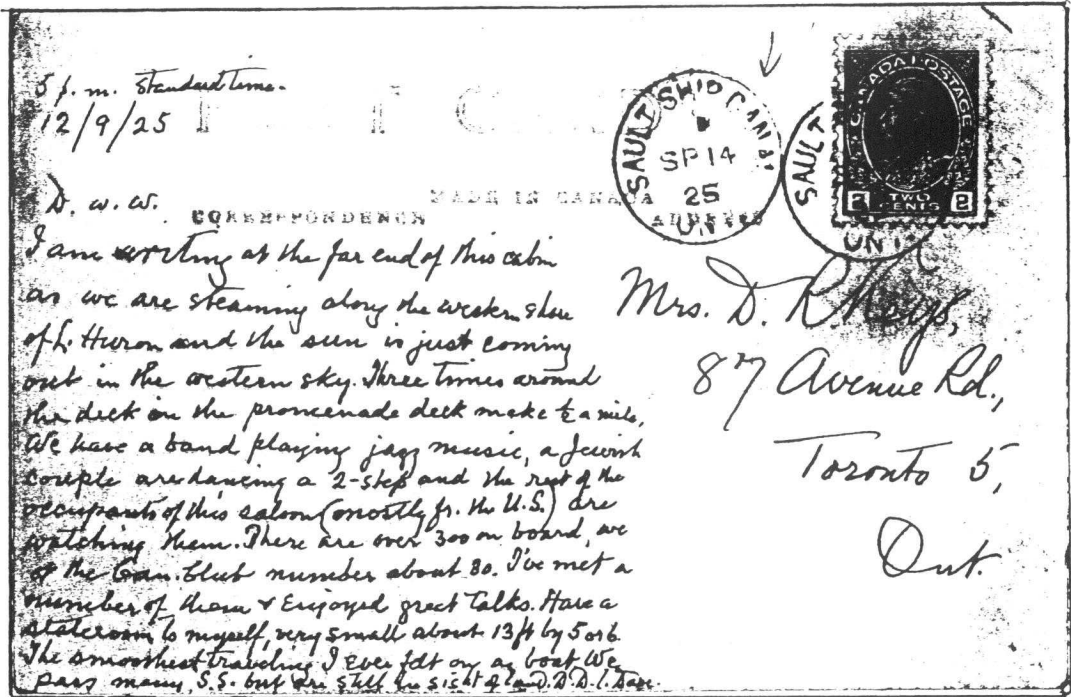 5 p.m. Standard time.
12/9/25
SAULT SHIP CANAL
SP 14
25
ONT
SAULT
ONT
CANADA POSTAGE
2 TWO CENTS 2
MADE IN CANADA
CORRESPONDENCE
ADDRESS
D. W. W.
I am writing at the far end of this cabin
as we are steaming along the western shore
of L. Huron and the sun is just coming
out in the western sky. Three times around
the deck on the promenade deck make ½ a mile.
We have a band playing jazz music, a Jewish
couple are dancing a 2-step and the rest of the
occupants of this saloon (mostly fr. the U.S.) are
watching them. There are over 300 on board, we
of the Can. Club number about 80. I've met a
number of them & Enjoyed great talks. Have a
stateroom to myself, very small about 13 ft by 5 or 6.
The smoothest traveling I ever felt on a boat. We
pass many S.S. but are still in sight of land.
Mrs. D. R. Keys,
87 Avenue Rd.,
Toronto 5,
Ont.